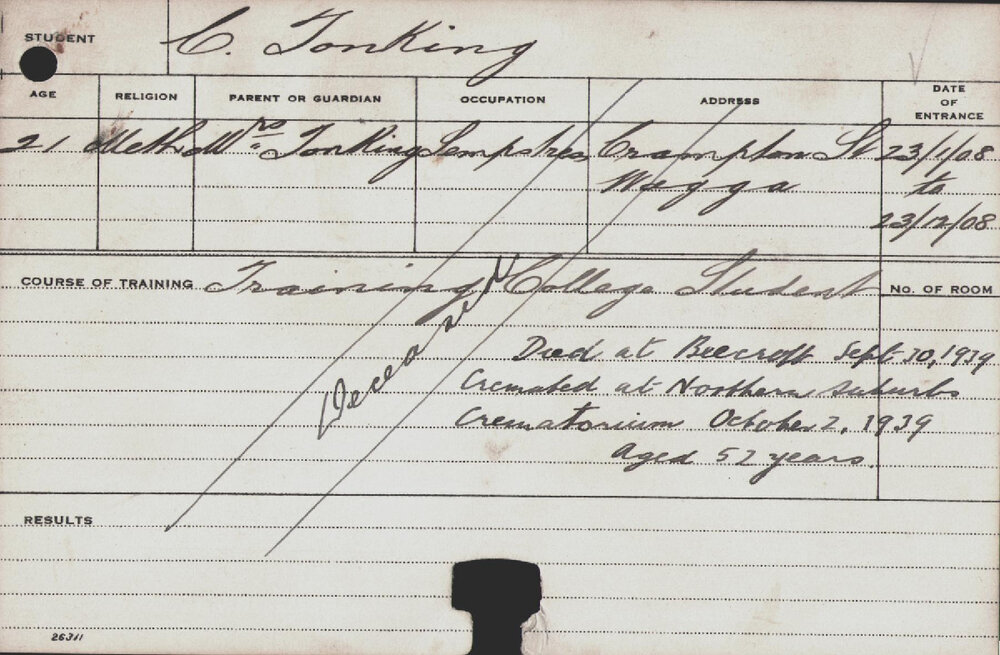 STUDENT C. Tonking
AGE RELIGION PARENT OR GUARDIAN OCCUPATION ADDRESS DATE OF ENTRANCE
21 Meth. Mrs. Tonking Sempstress Crampton St 23/1/08
Wagga to
23/12/08
COURSE OF TRAINING Training College Student No. OF ROOM
Deceased
Died at Beecroft Sept 30, 1939
Cremated at Northern Suburbs
Crematorium October 2, 1939
Aged 52 years.
RESULTS
26311